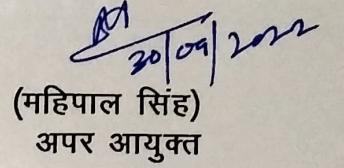 30/09/2022
(महिपाल सिंह)
अपर आयुक्त